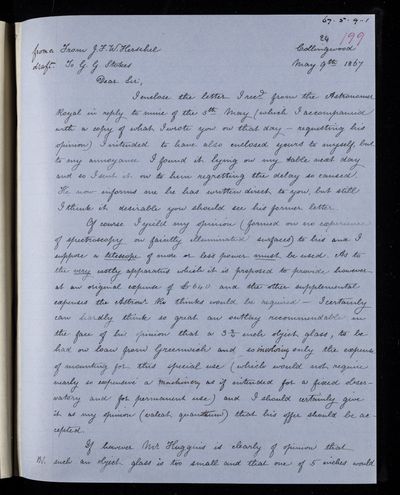 67-5-9-1
24 199
from a From J. F. W. Herschel Collingwood
draft. To G. G. Stokes May 9th 1867
Dear Sir,
I enclose the letter I recd. from the Astronomer
Royal in reply to mine of the 5th May (which I accompanied
with a copy of what I wrote you on that day — requesting his
opinion) I intended to have also enclosed yours to myself, but
to my annoyance I found it lying on my table next day
and so I sent it on to him regretting the delay so caused.
He now informs me he has written direct to you, but still
I think it desirable you should see his former letter
Of course I yield my opinion (formed on no experience
of spectroscopy on faintly illuminated surfaces) to his and I
suppose a telescope of more or less power must be used. As to
the very costly apparatus which it is proposed to provide however
at an original expense of £ and the other supplemental
expenses the Astronr. Rl. thinks would be required — I certainly
can hardly think so great an outlay recommendable in
the face of his opinion that a 3 3/4 inch object glass, to be
had on loan from Greenwich and so involving only the expense
of mounting for this special use (which would not require
nearly so expensive a machinery as if intended for a fixed obser-
vatory and for permanent use) and I should certainly give
it as my opinion (valeat quantum) that his offer should be ac-
cepted.
If however Mr Huggins is clearly of opinion that
such an object glass is too small and that one of 5 inches would